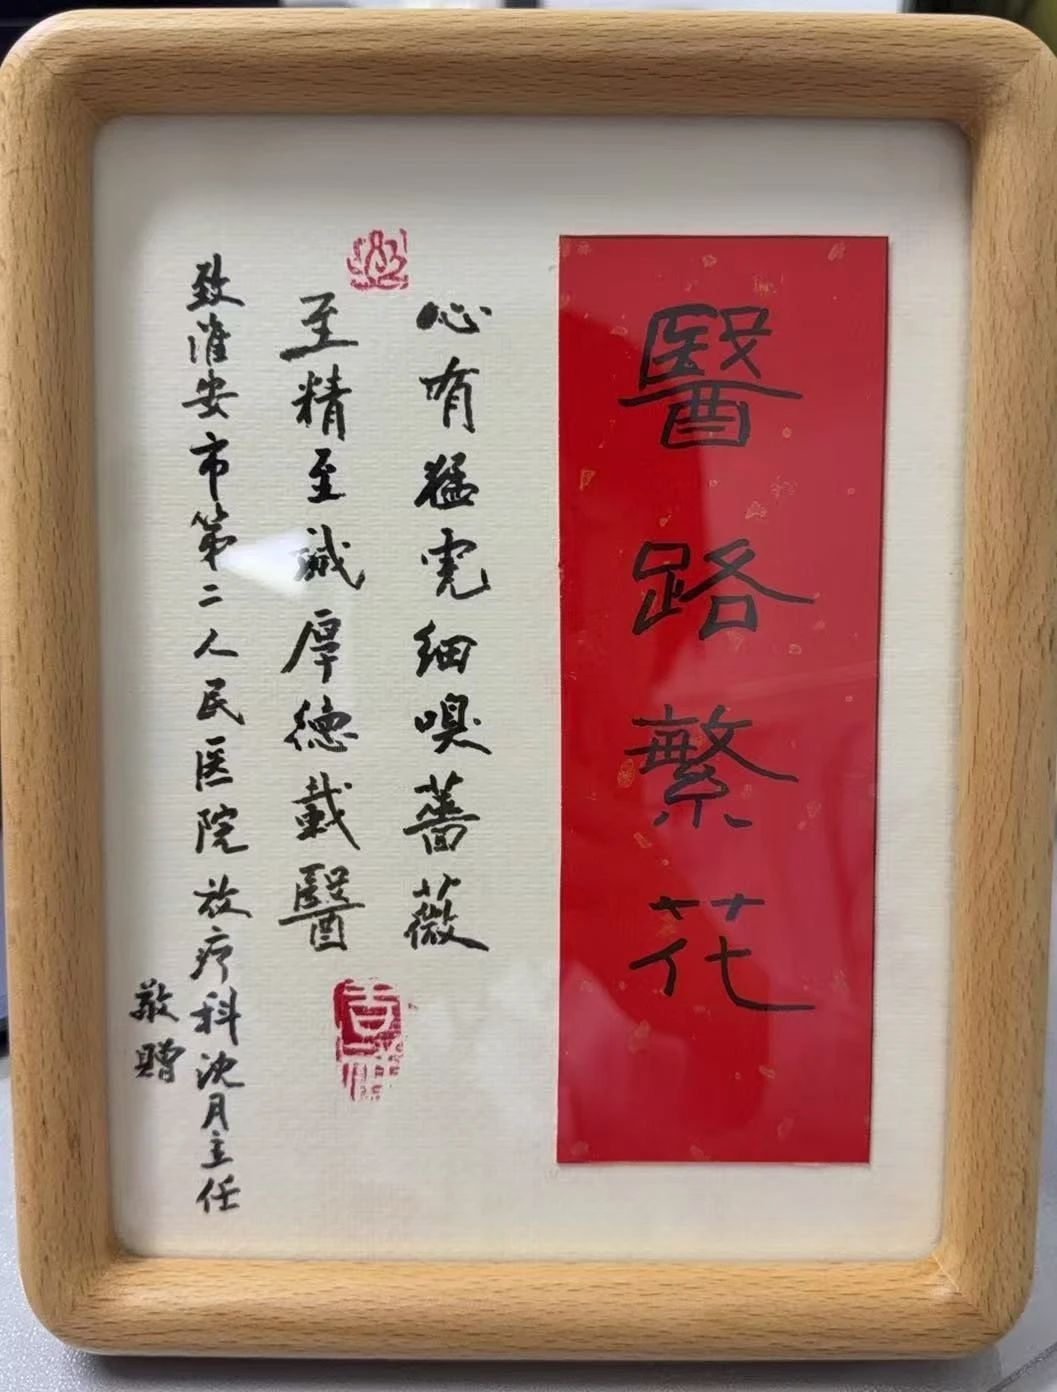 醫路繁花
心有猛虎细嗅薔薇
至精至誠厚德載醫
致淮安市第二人民医院放疗科沈月主任
敬赠